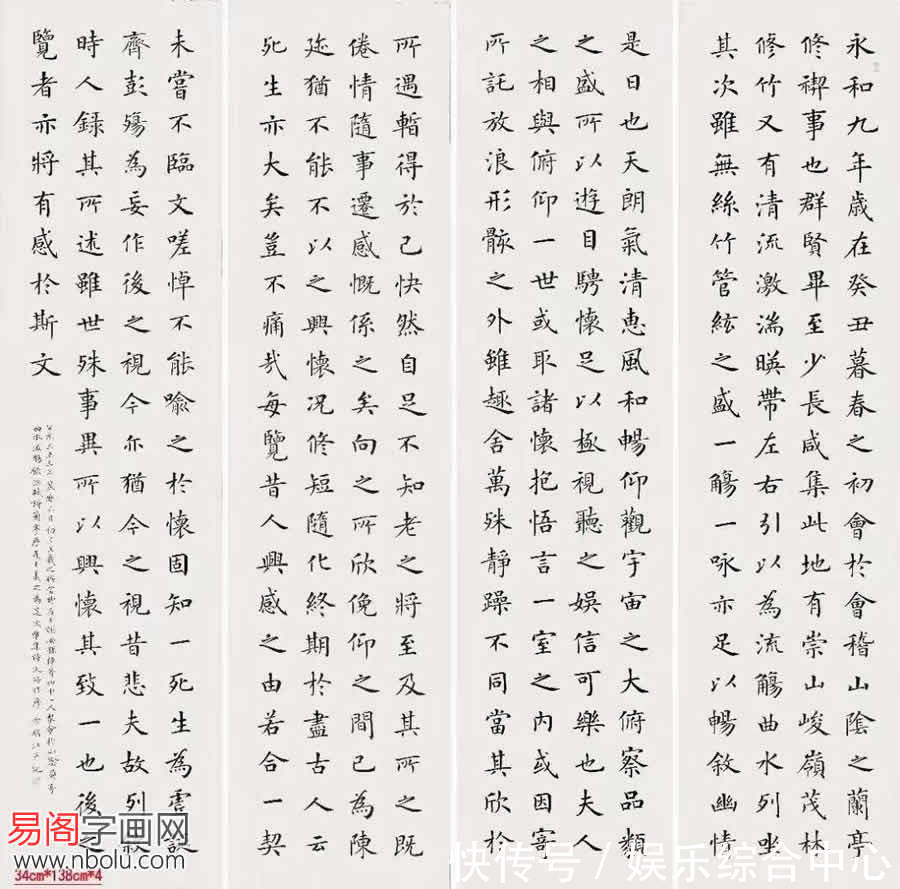 永和九年歲在癸丑暮春之初會於會稽山陰之蘭亭
修禊事也群賢畢至少長咸集此地有崇山峻嶺茂林
修竹又有清流激湍暎帶左右引以為流觴曲水列坐
其次雖無絲竹管絃之盛一觴一咏亦足以暢敘幽情
是日也天朗氣清惠風和暢仰觀宇宙之大俯察品類
之盛所以遊目騁懷足以極視聽之娛信可樂也夫人
之相與俯仰一世或取諸懷抱悟言一室之內或因寄
所託放浪形骸之外雖趣舍萬殊靜躁不同當其欣於
所遇暫得於己快然自足不知老之將至及其所之既
倦情隨事遷感慨係之矣向之所欣俛仰之間已為陳
迹猶不能不以之興懷況修短隨化終期於盡古人云
死生亦大矣豈不痛哉每覽昔人興感之由若合一契
未嘗不臨文嗟悼不能喻之於懷固知一死生為虛誕
齊彭殤為妄作後之視今亦猶今之視昔悲夫故列敘
時人錄其所述雖世殊事異所以興懷其致一也後之
覽者亦將有感於斯文
易阁字画网
www.nbolu.com
34cm*138cm*4
快传号 / 娱乐综合中心